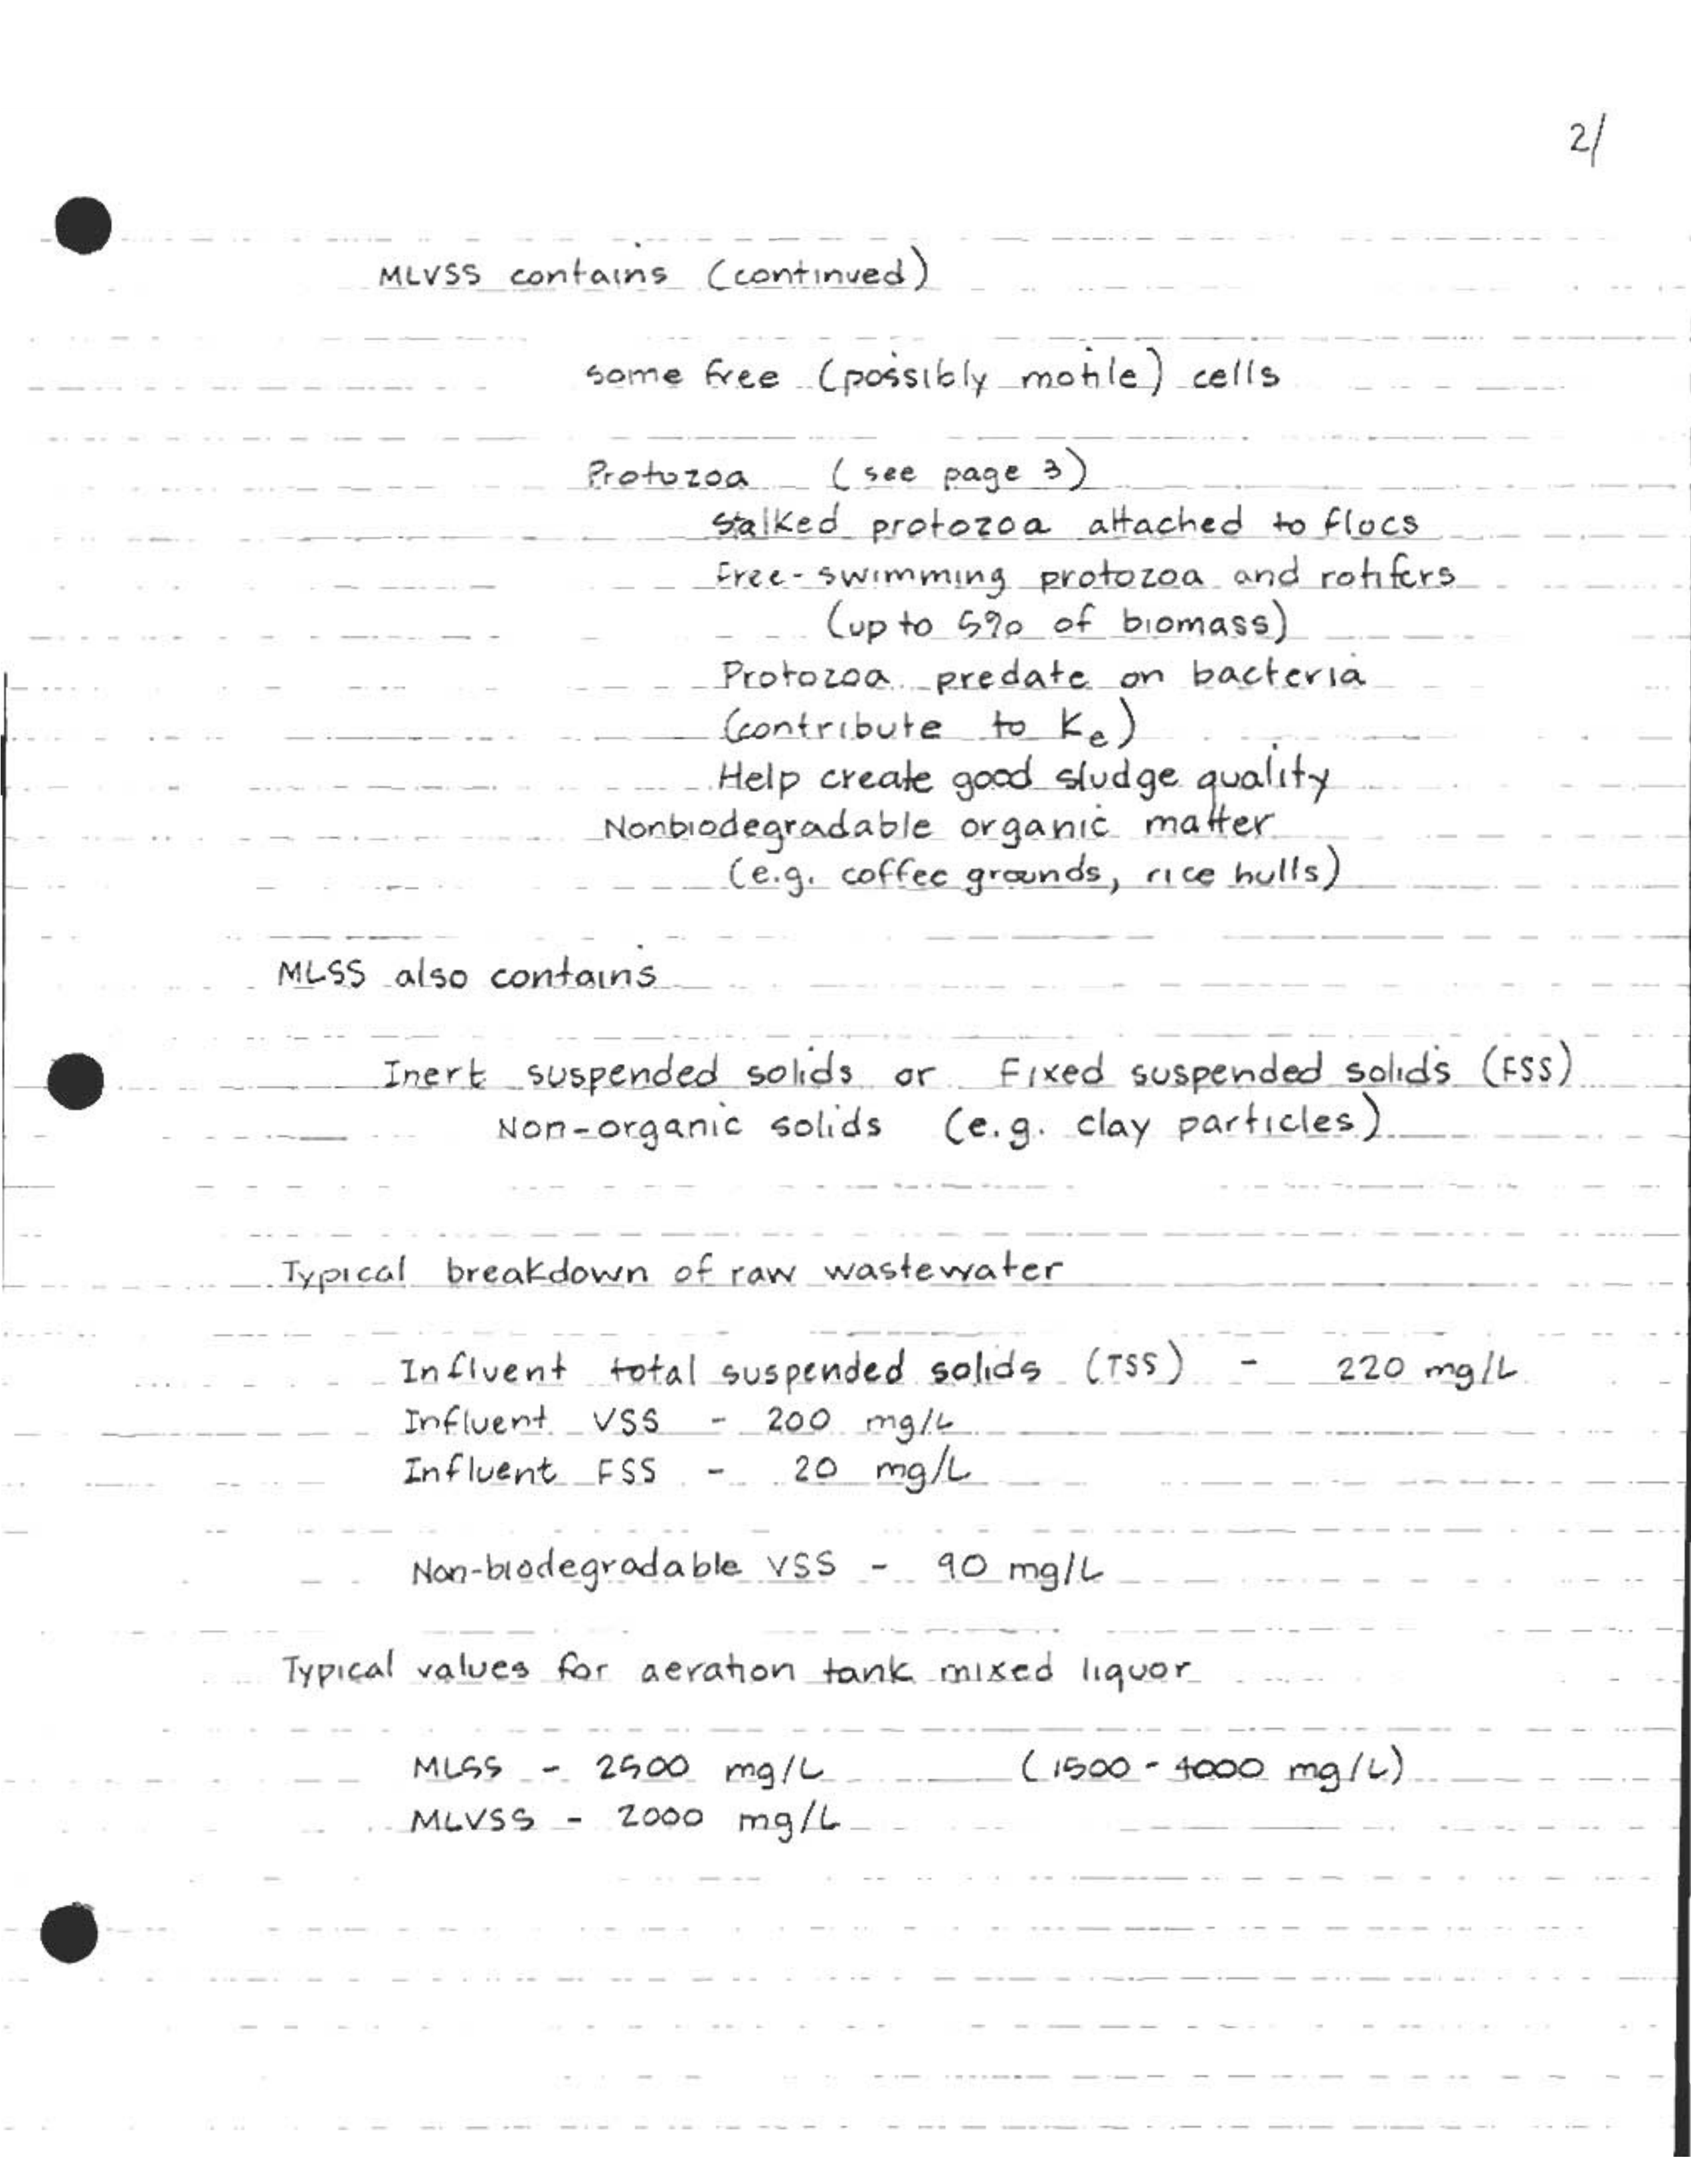 2/
MLVSS contains (continued)
some free (possibly motile) cells
Protozoa (see page 3)
Stalked protozoa attached to flocs
Free-swimming protozoa and rotifers
(up to 5% of biomass)
Protozoa predate on bacteria
(contribute to Ke)
Help create good sludge quality
Nonbiodegradable organic matter
(e.g. coffee grounds, rice hulls)
MLSS also contains
Inert suspended solids or Fixed suspended solids (FSS)
Non-organic solids (e.g. clay particles)
Typical breakdown of raw wastewater
Influent total suspended solids (TSS) - 220 mg/L
Influent VSS - 200 mg/L
Influent FSS - 20 mg/L
Non-biodegradable VSS - 90 mg/L
Typical values for aeration tank mixed liquor
MLSS - 2500 mg/L (1500 - 4000 mg/L)
MLVSS - 2000 mg/L